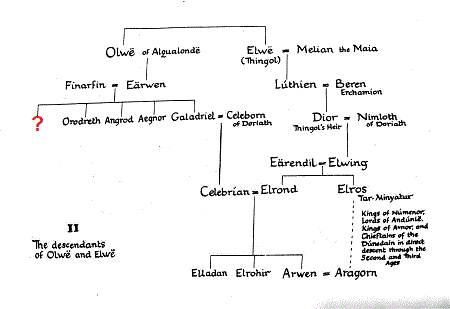 Olwë of Alqualondë
Elwë = Melian the Maia
(Thingol)
Finarfin = Eärwen
Lúthien = Beren
Erchamion
? Orodreth Angrod Aegnor Galadriel = Celeborn
of Doriath
Dior = Nimloth
Thingol's Heir
of Doriath
Eärendil = Elwing
Celebrían = Elrond
Elros
Tar-Minyatur
Kings of Númenor,
Lords of Andúnië,
Kings of Arnor, and
Chieftains of the
Dúnedain in direct
descent through the
Second and Third
Ages
II
The descendants
of Olwë and Elwë
Elladan Elrohir Arwen = Aragorn